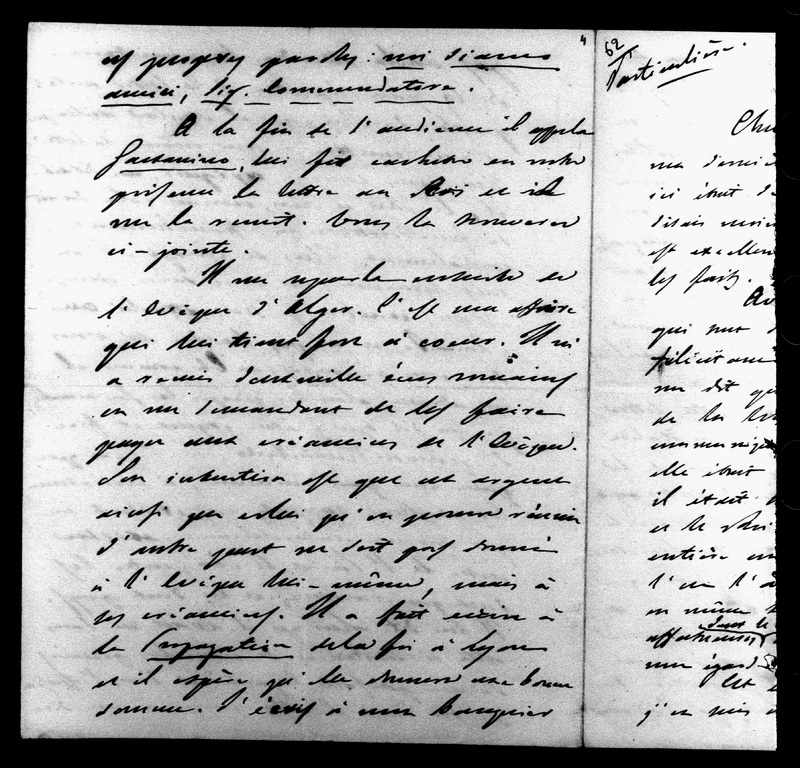 4
: noi siamo
amici, Sig. Commendatore.
A la fin de l'audience il appela
Gaetanino, lui fit cacheter en notre
présence la lettre au Roi et il
me la remit. Vous la trouverez
ci-jointe.
Il me reparla ensuite de
l'Evêque d'Alger. C'est une affaire
qui lui tient fort à coeur. Il m'
a remis deux mille écus romains
en me demandant de les faire
payer aux créanciers de l'Evêque.
Son intention est que cet argent
ainsi que celui qu'on pourra réunir
d'autre part ne soit pas donné
à l'Evêque lui-même, mais à
ses créanciers. Il a fait écrire à
la Propagation de la foi à Lyon
et il espère qu'elle donnera une bonne
somme. J'écris à mon banquier
62
Particulière.
Cher
ma derniè
ici était de
disais
est excellen
les faits.
qui me
félicit
me dit que
de la
elle était
il était
et le
entière
l'on l'a
en même
dans le
affectueuses
mon égard
Et
j'en suis